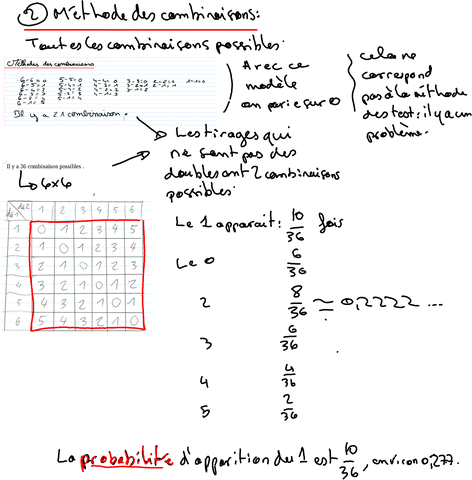 ② Méthode des combinaisons:
Toutes les combinaisons possibles.
Méthodes des combinaisons
6-6=0 5-5=0
Il y a 21 combinaison.
Avec ce
modèle
on parie sur 0
cela ne
correspond
pas à la méthode
des test: il y a un
problème.
→ Les tirages qui
ne sont pas des
doubles ont 2 combinaisons
possibles.
Il y a 36 combinaison possibles .
↳ 6x6
dé 2 1 2 3 4 5 6
dé 1
1 0 1 2 3 4 5
2 1 0 1 2 3 4
3 2 1 0 1 2 3
4 3 2 1 0 1 2
5 4 3 2 1 0 1
6 5 4 3 2 1 0
Le 1 apparait: 10/36 fois
Le 0 6/36
2 8/36 ≈ 0,2222 ...
3 6/36
4 4/36
5 2/36
La probabilité d'apparition du 1 est 10/36, environ 0,277.